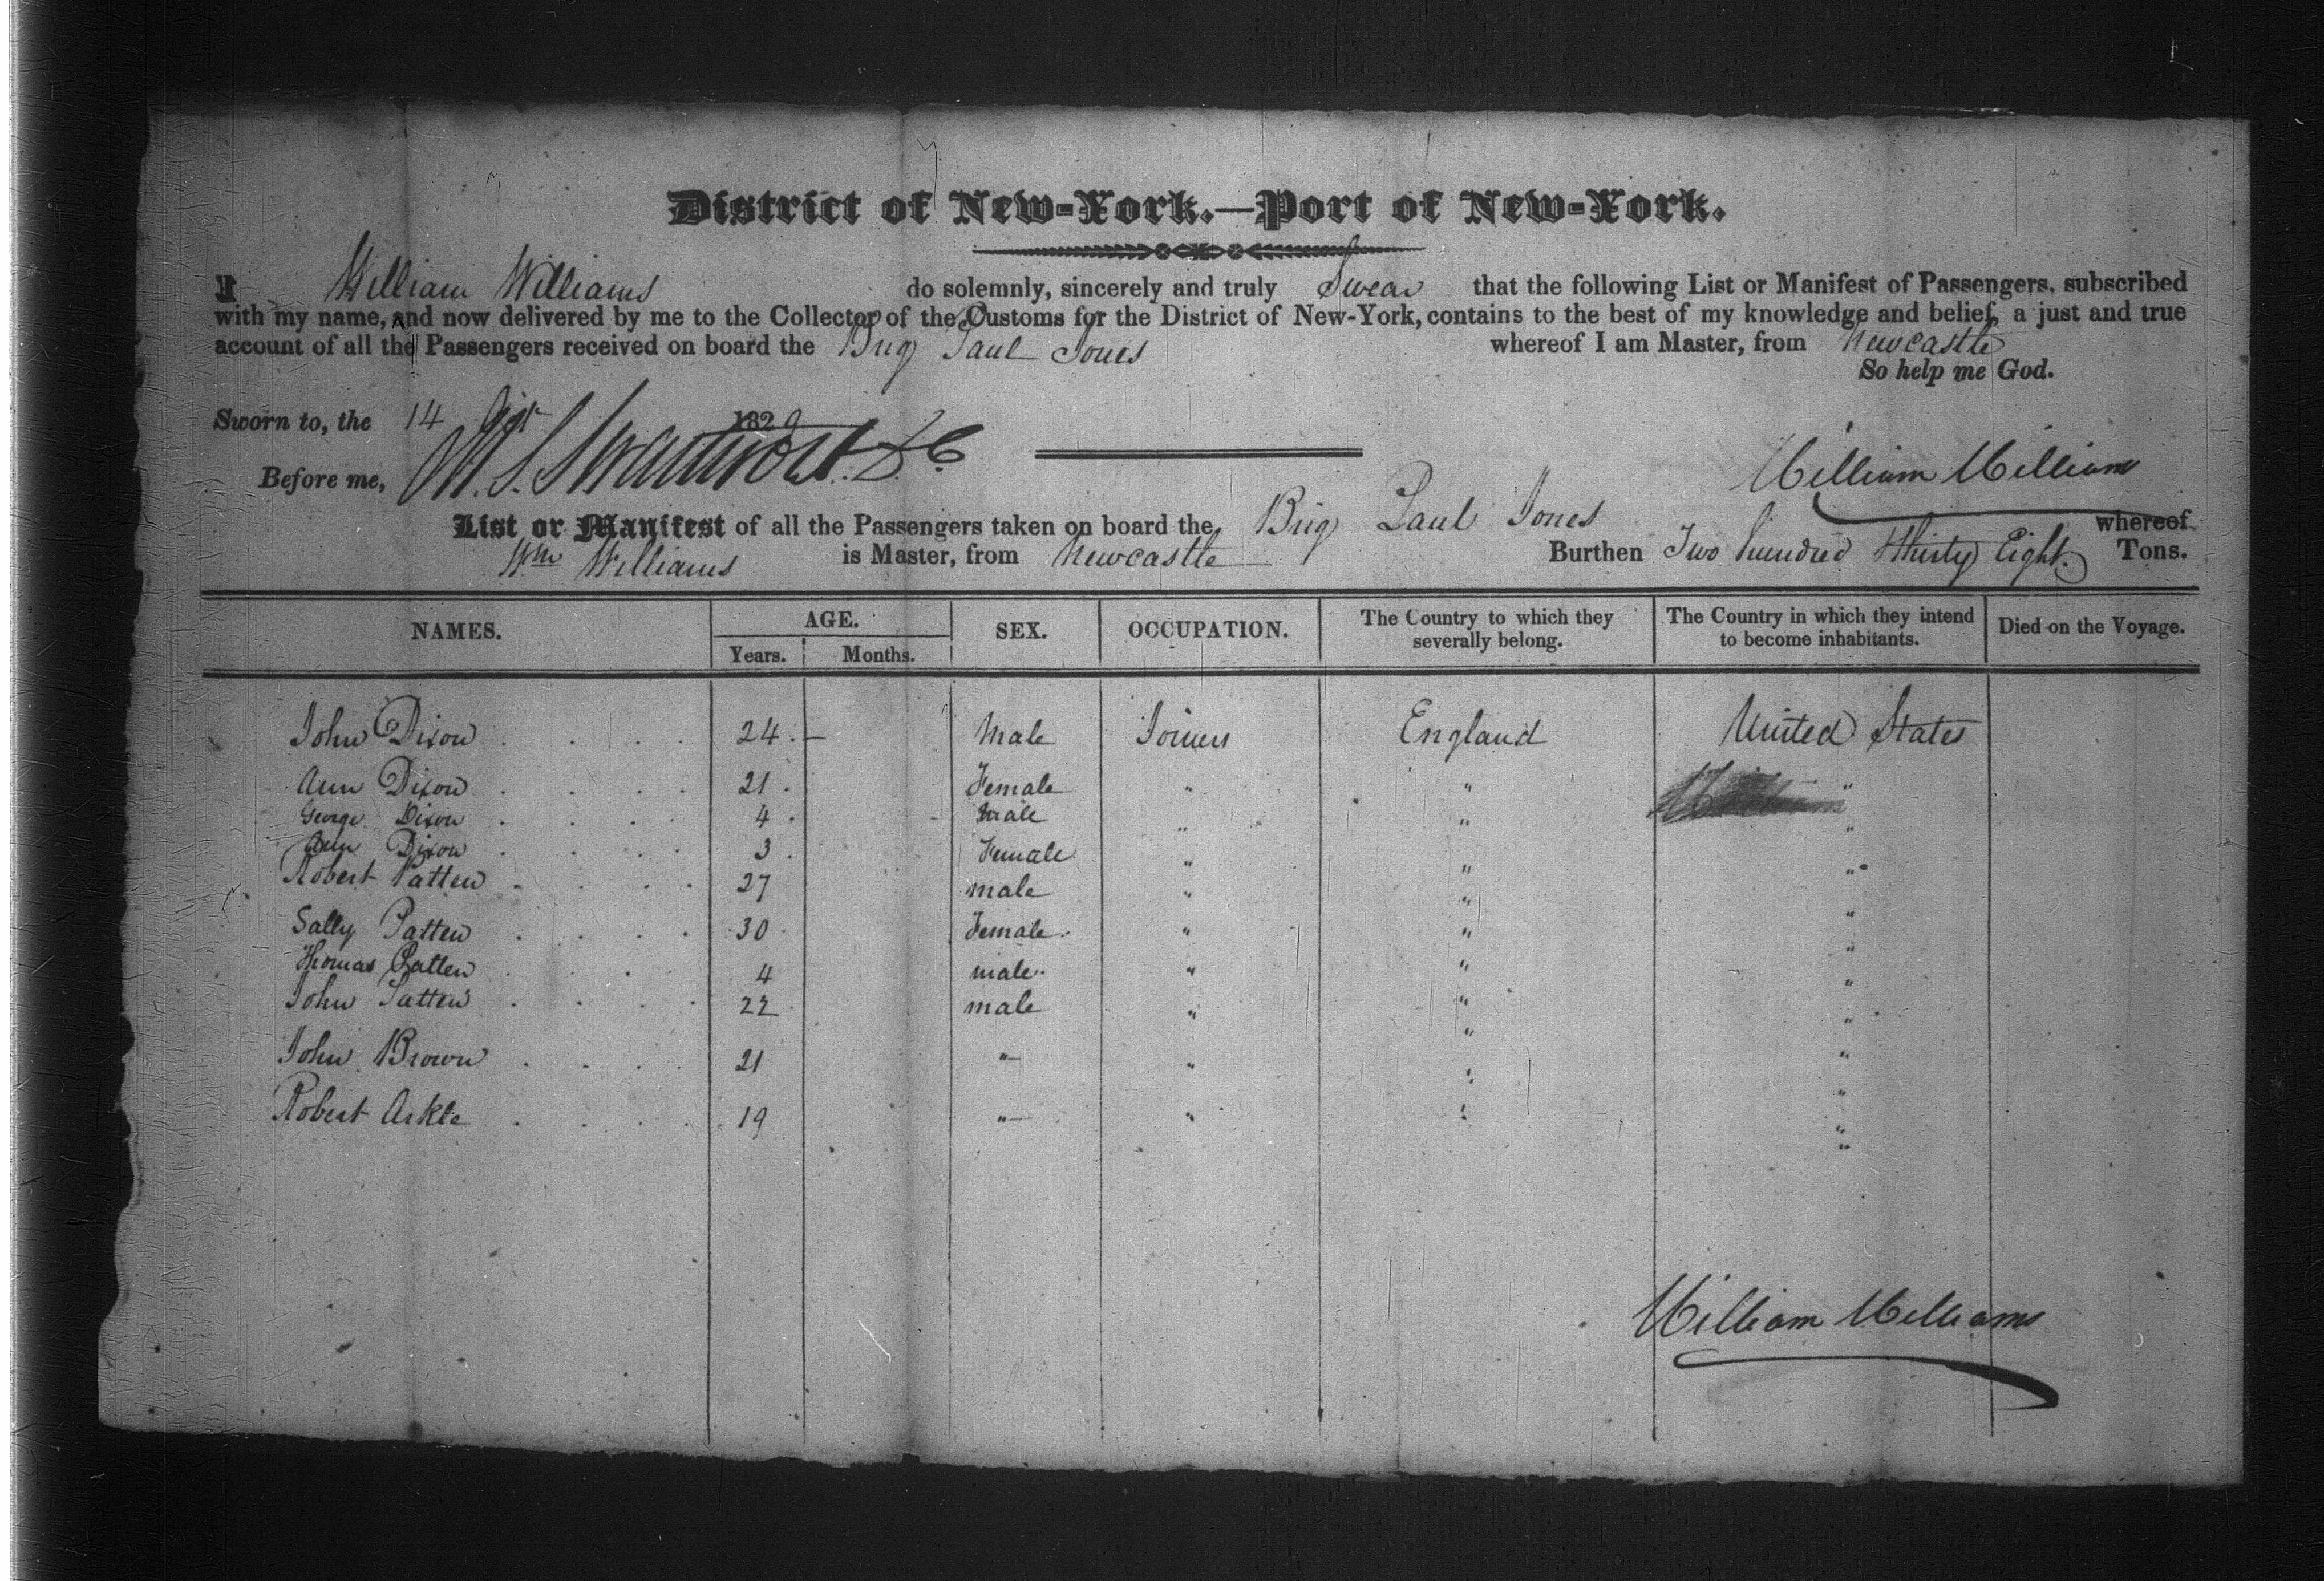 District of New-York.—Port of New-York.
I William Williams do solemnly, sincerely and truly Swear that the following List or Manifest of Passengers, subscribed
with my name, and now delivered by me to the Collector of the Customs for the District of New-York, contains to the best of my knowledge and belief, a just and true
account of all the Passengers received on board the Brig Paul Jones whereof I am Master, from Newcastle
So help me God.
Sworn to, the 14 1829
Before me, William Williams
List or Manifest of all the Passengers taken on board the Brig Paul Jones whereof
Wm Williams is Master, from Newcastle Burthen Two hundred Thirty Eight Tons.
NAMES. AGE. SEX. OCCUPATION. The Country to which they severally belong. The Country in which they intend to become inhabitants. Died on the Voyage.
Years. Months.
John Dixon 24 — Male Joiner England United States
Ann Dixon 21 Female " " "
George Dixon 4 Male " " "
Ann Dixon 3 Female " " "
Robert Patten 27 male " " "
Sally Patten 30 Female " " "
Thomas Patten 4 male " " "
John Patten 22 male " " "
John Brown 21 " " " "
Robert Arkle 19 " " " "
William Williams